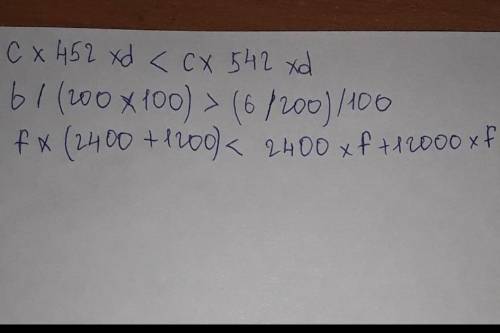 c x 452 xd < cx 542 xd
b / (200 x 100) > (6 / 200) / 100
f x (2400 + 1200) < 2400 x f + 12000 x f